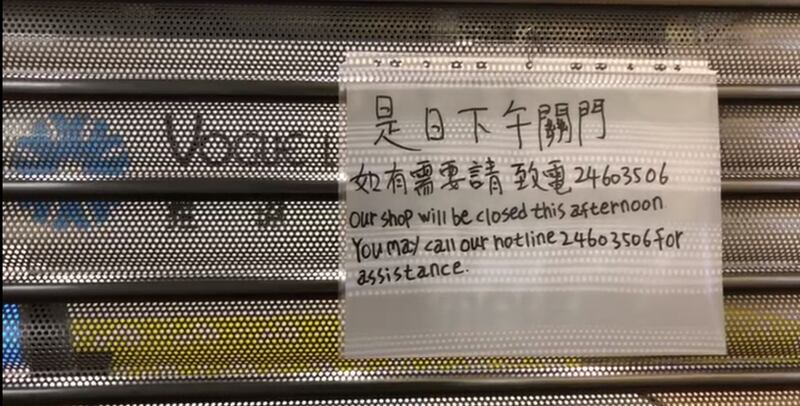 VOGUE
是日下午關門
如有需要請致電24603506
Our shop will be closed this afternoon
You may call our hotline 24603506 for
assistance.